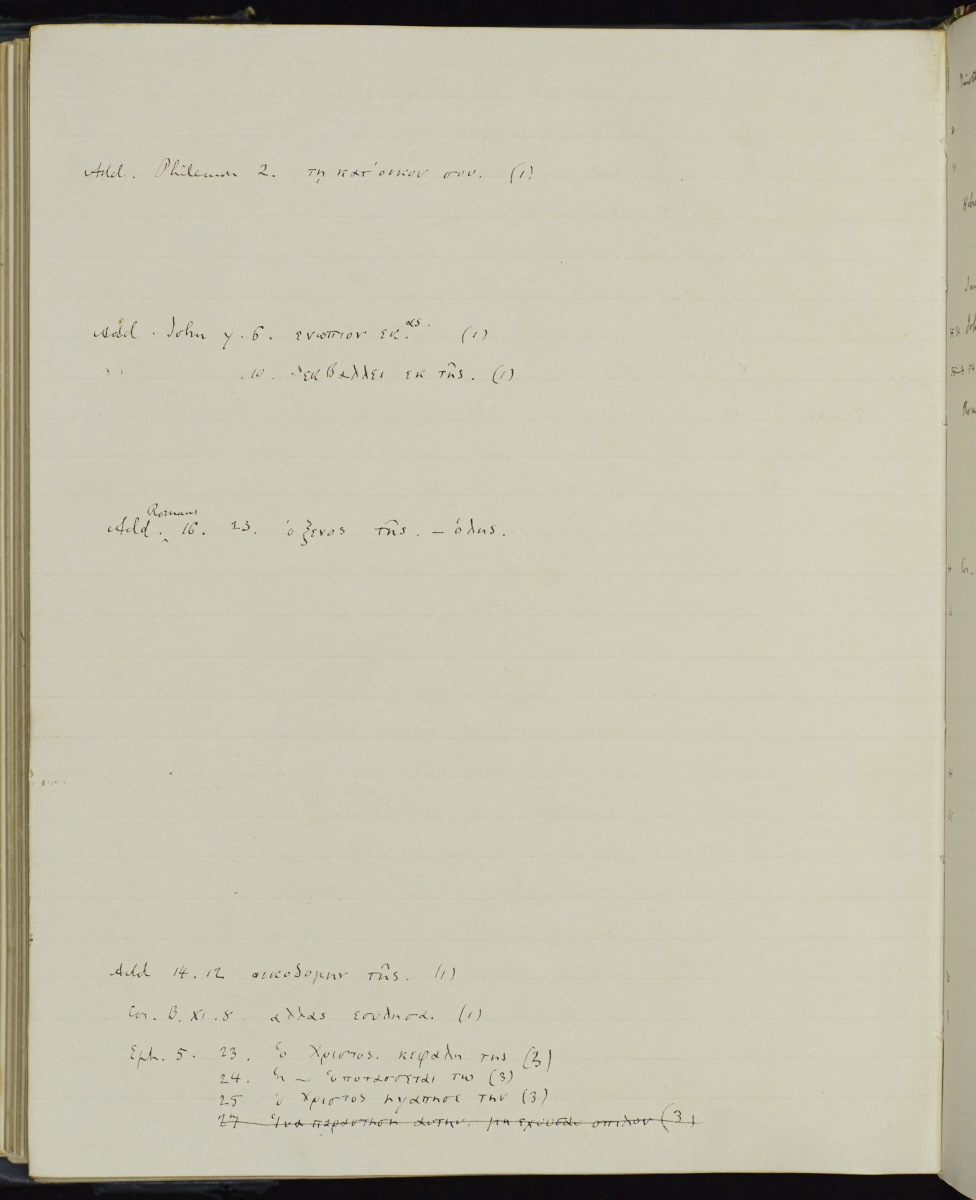 Add. Philemon 2. τη κατ' οικον σου. (1)
Add. John γ. 6. ενωπιον εκ.ας. (1)
10. εκβαλλει εκ της. (1)
Add. Romans 16. 23. ὁ ξενος της. – ὁλης.
Add 14. 12 οικοδομην της. (1)
Cor. B. XI. 8. αλλας εσυλησα. (1)
Eph. 5. 23. ὁ Χριστος. κεφαλη της (3)
24. ἡ – ὑποτασσεται τω (3)
25 ὁ Χριστος ηγαπησε την (3)
27 ἱνα παραστηση αυτην. μη εχουσαν σπιλον (3)